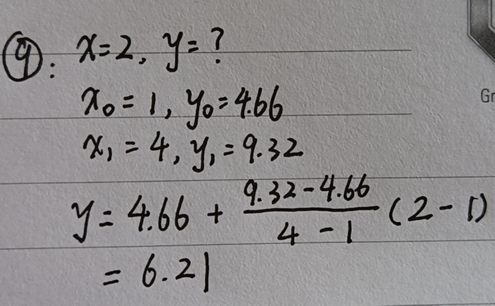 ⑨: x=2, y=?
x₀=1, y₀=4.66
x₁=4, y₁=9.32
y=4.66+\frac{9.32-4.66}{4-1}(2-1)
=6.21
Gr